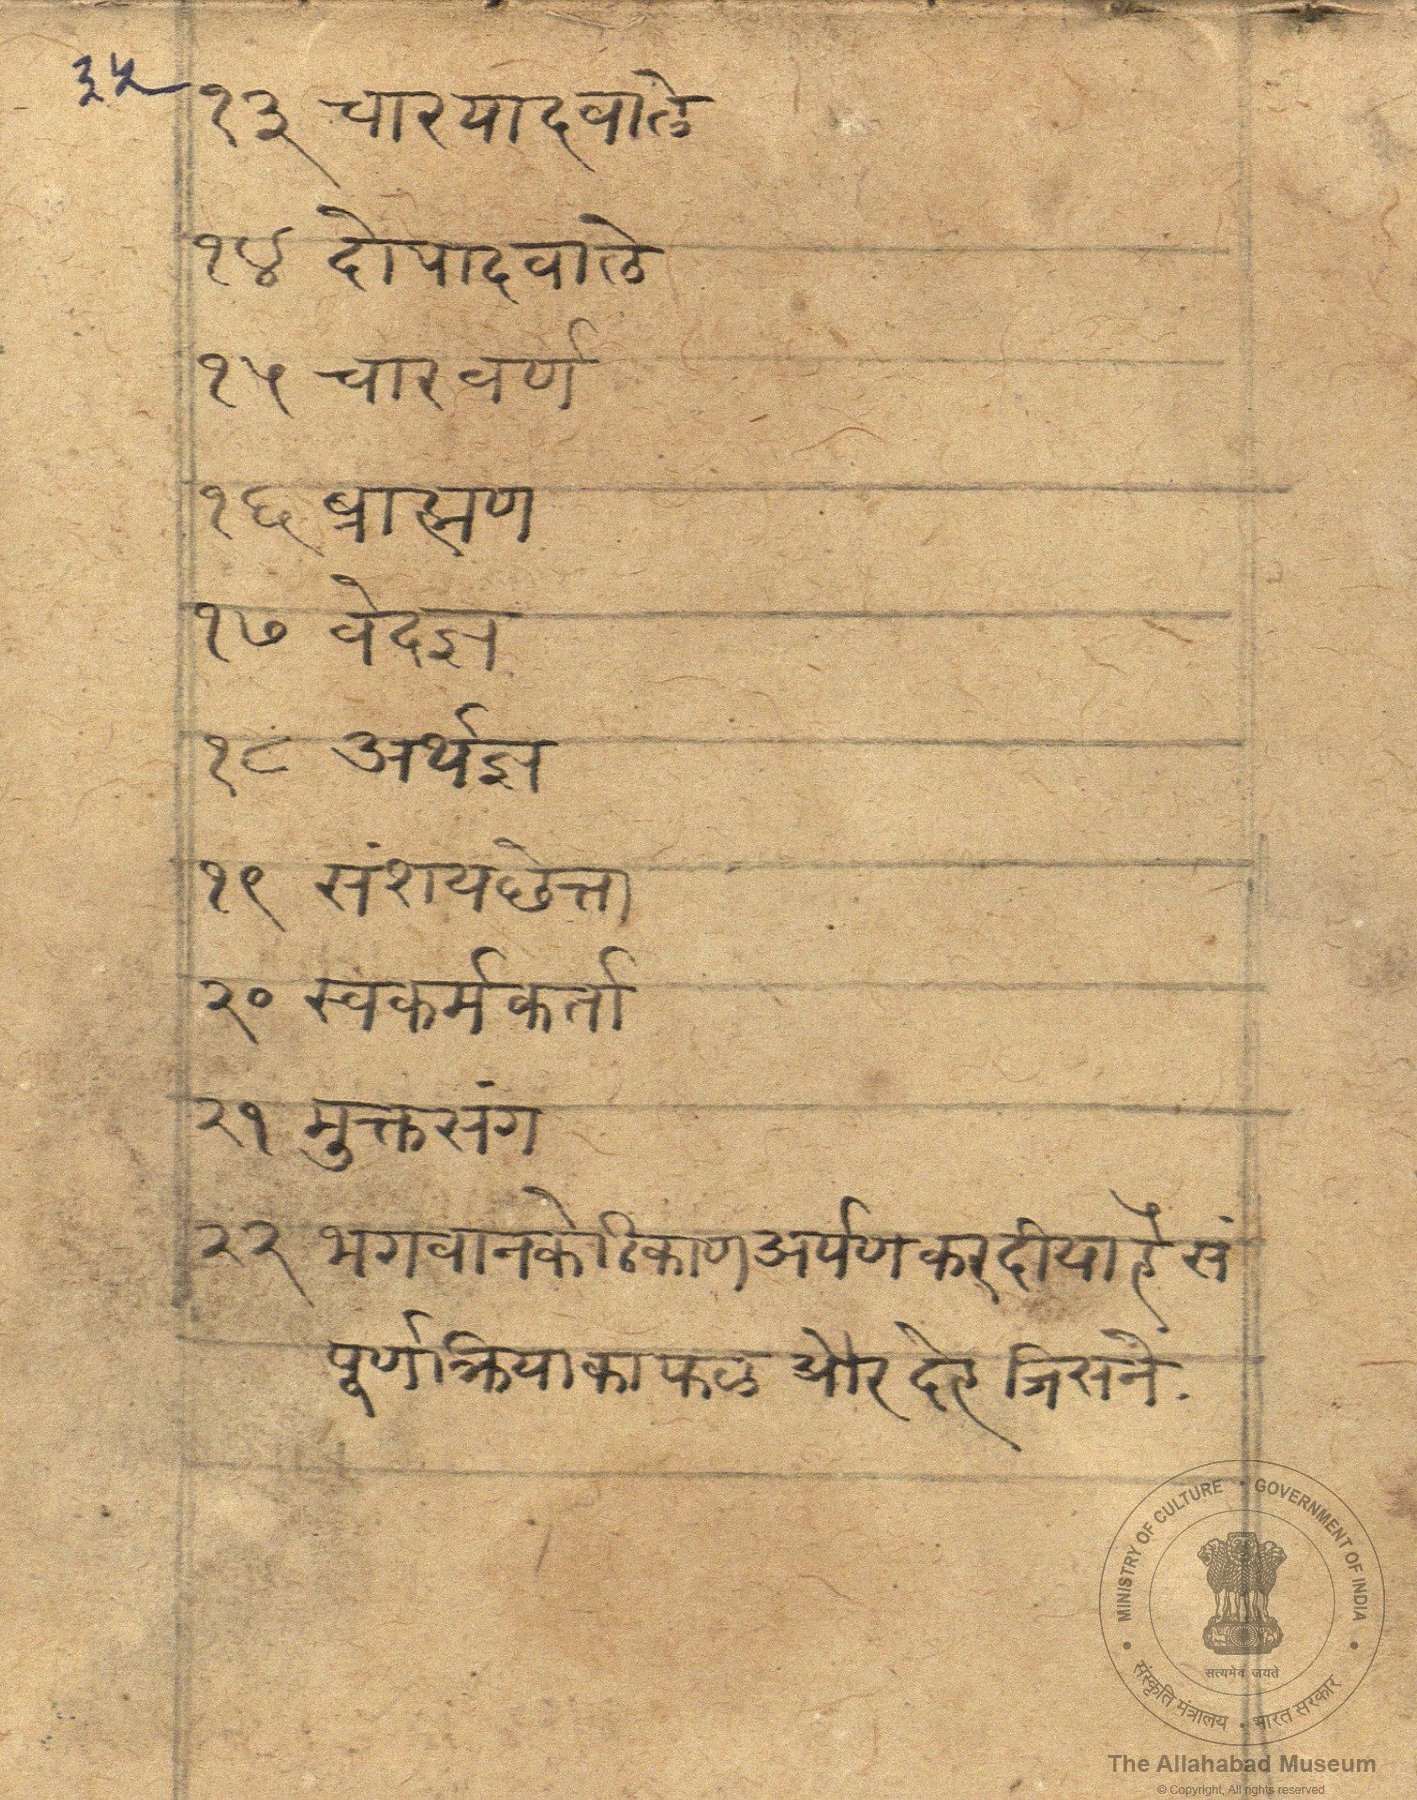 ३५
१३ चारयादवाले
१४ दोपादवाले
१५ चारवर्ण
१६ ब्राह्मण
१७ वेदज्ञ
१८ अर्थज्ञ
१९ संशयछेत्ता
२० स्वकर्मकर्ता
२१ मुक्तसंग
२२ भगवानकेठिकाण अर्पणकरदीयाहै सं
पूर्णक्रियाका फळ और देह जिसने.
MINISTRY OF CULTURE • GOVERNMENT OF INDIA
सत्यमेव जयते
संस्कृति मंत्रालय • भारत सरकार
The Allahabad Museum
© Copyright, All rights reserved